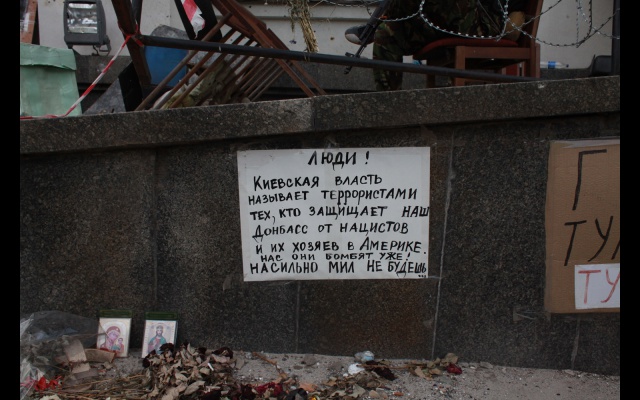 ЛЮДИ!
КИЕВСКАЯ ВЛАСТЬ
НАЗЫВАЕТ ТЕРРОРИСТАМИ
ТЕХ, КТО ЗАЩИЩАЕТ НАШ
ДОНБАСС ОТ НАЦИСТОВ
И ИХ ХОЗЯЕВ В АМЕРИКЕ.
НАС ОНИ БОМБЯТ УЖЕ!
НАСИЛЬНО МИЛ НЕ БУДЕШЬ...
Г
ТУ
ТУ